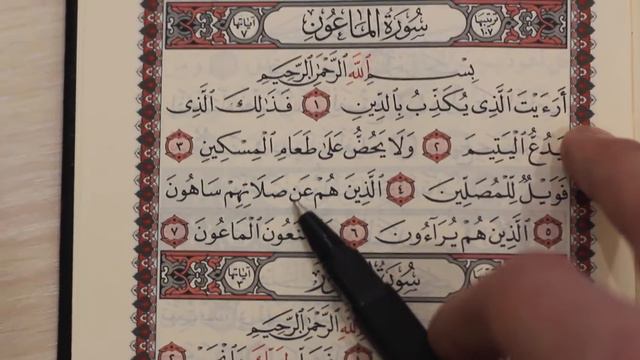 ترتيبها ١٠٧ سُورَةُ الْمَاعُونِ آياتها ٧
بِسْمِ اللَّهِ الرَّحْمَٰنِ الرَّحِيمِ
أَرَءَيْتَ الَّذِى يُكَذِّبُ بِالدِّينِ ١ فَذَٰلِكَ الَّذِى
يَدُعُّ الْيَتِيمَ ٢ وَلَا يَحُضُّ عَلَىٰ طَعَامِ الْمِسْكِينِ ٣
فَوَيْلٌ لِلْمُصَلِّينَ ٤ الَّذِينَ هُمْ عَنْ صَلَاتِهِمْ سَاهُونَ
٥ الَّذِينَ هُمْ يُرَآءُونَ ٦ الْمَاعُونَ ٧
سُورَةُ آياتها ٣
اللَّهِ الرَّحْمَٰنِ الرَّحِيمِ